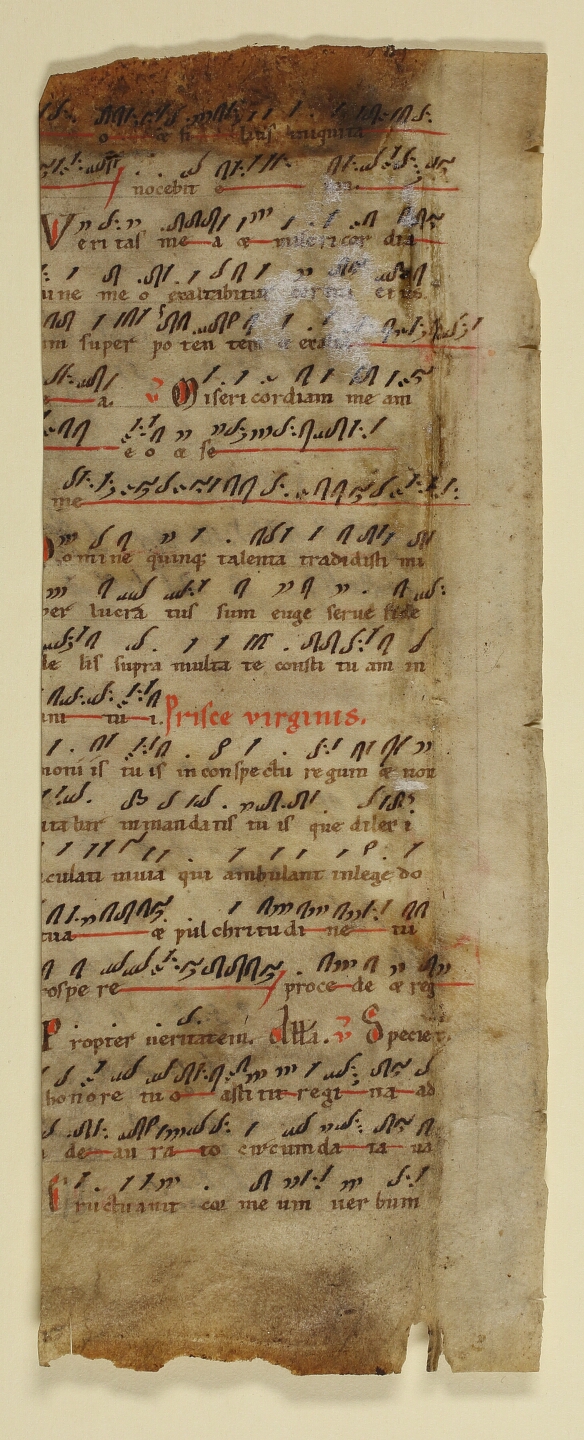 o æ fi liis iniquita
nocebit e
Veritas me a æ misericor dia
ine me o exaltabitur cornu eius.
m super po ten tem æ exal
a. Misericordiam me am
e o æ se
me
omine quinq; talenta tradidisti mi
per lucra tus sum euge serue fide
le lis supra multa te consti tu am in
ni tu i. Prisce virginis.
moni is tu is inconspectu regum æ non
ita bar inmandatis tu is que dilex i
culati inuia qui ambulant inlege do
tua æ pulchritudi ne tu
ospe re proce de æ reg
Propter ueritatem. All'a. Specie t.
honore tu o astitit regi na ad
de au ra to circumda ta ua
Eructauit cor me um uer bum